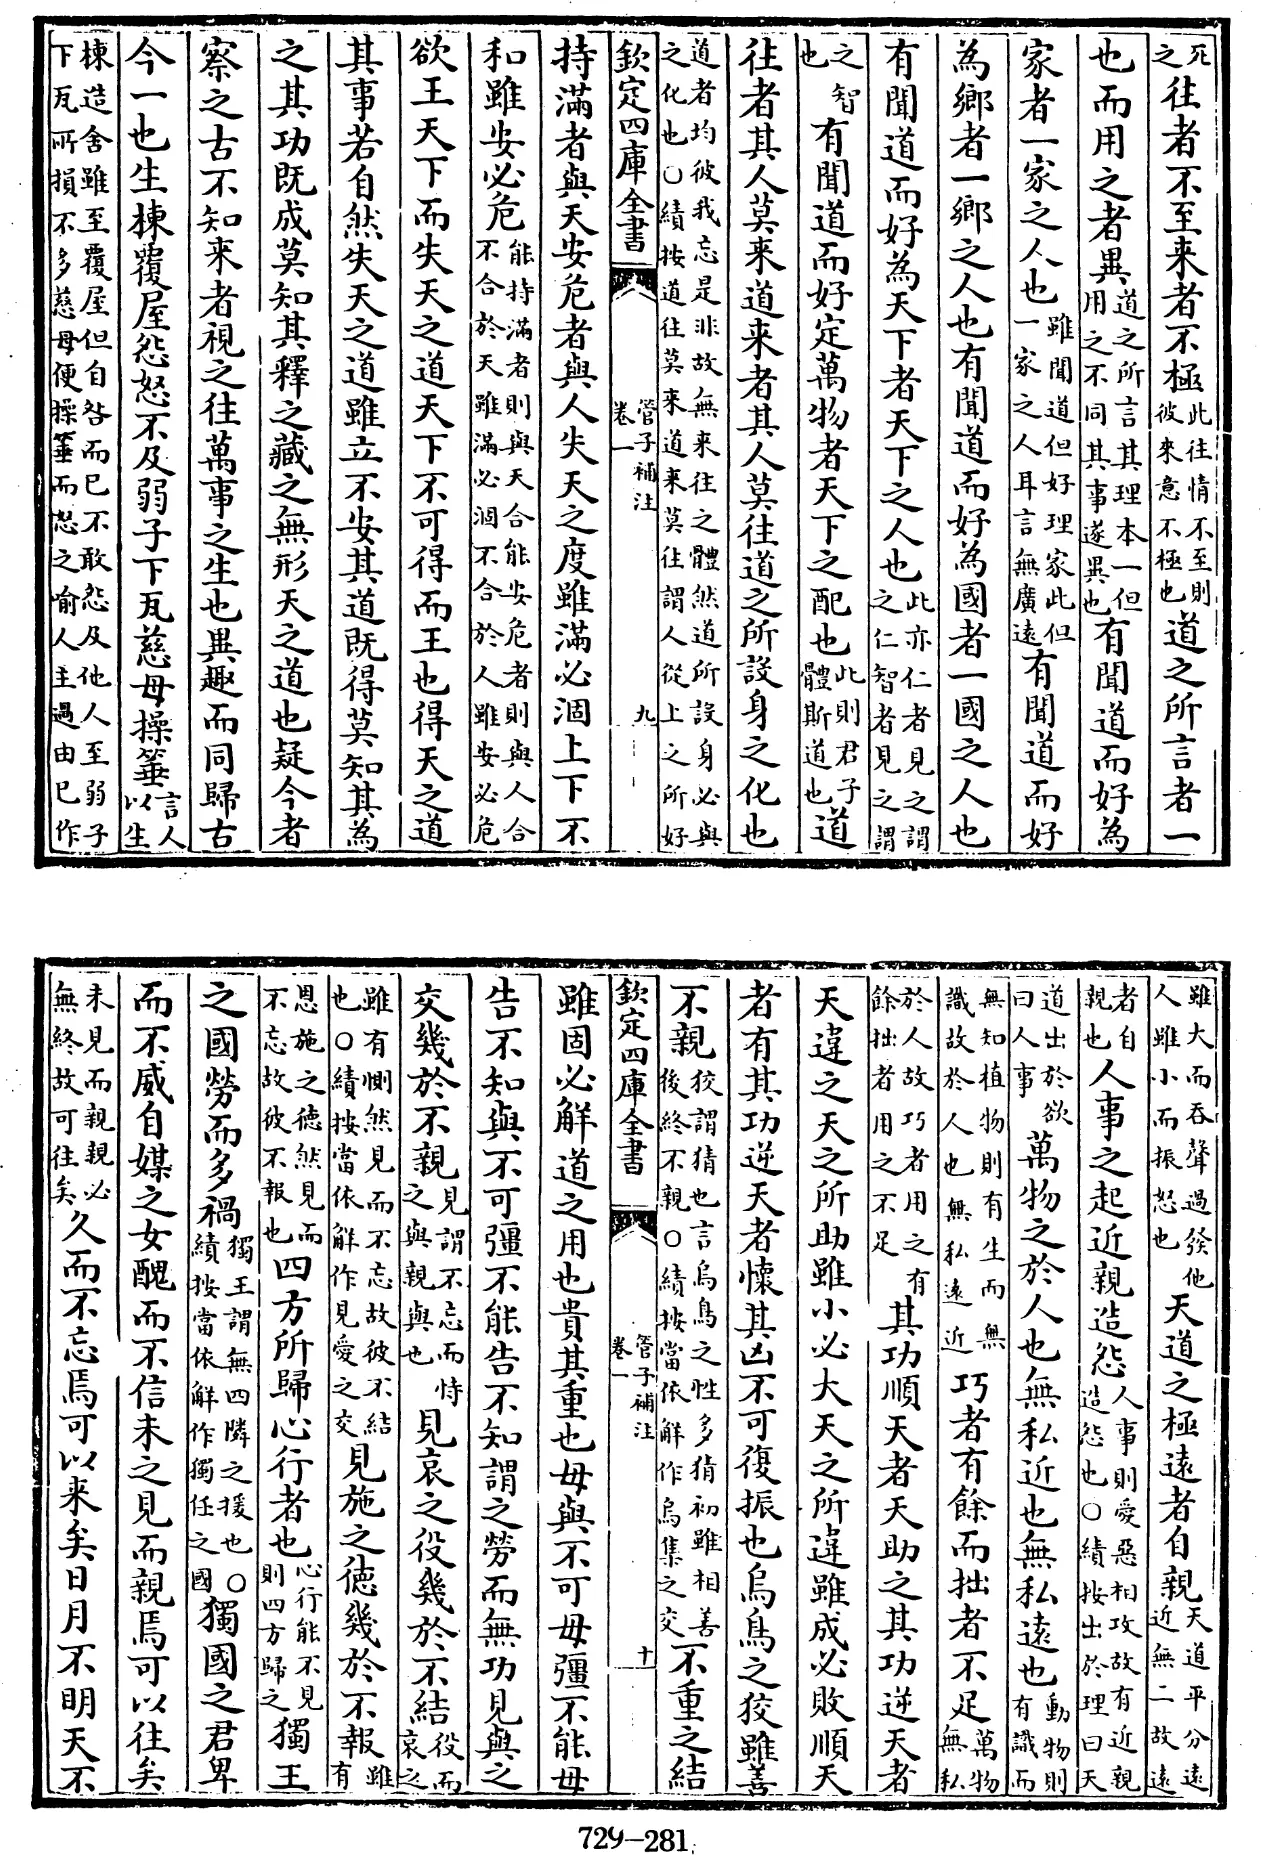 死之往者不至来者不極此往情不至則彼来意不極也道之所言者一
也而用之者異道之所言其理本一但用之不同其事遂異也有聞道而好為
家者一家之人也雖聞道但好理家此但一家之人耳言無廣遠有聞道而好
為鄉者一鄉之人也有聞道而好為國者一國之人也
有聞道而好為天下者天下之人也此亦仁者見之謂之仁智者見之謂
之智也有聞道而好定萬物者天下之配也此則君子體斯道也道
往者其人莫来道来者其人莫往道之所設身之化也
道者均彼我忘是非故無来往之體然道所設身必與之化也○績按道往莫来道来莫往謂人從上之所好
欽定四庫全書 管子補注 卷一 九
持滿者與天安危者與人失天之度雖滿必涸上下不
和雖安必危能持滿者則與天合能安危者則與人合不合於天雖滿必涸不合於人雖安必危
欲王天下而失天之道天下不可得而王也得天之道
其事若自然失天之道雖立不安其道既得莫知其為
之其功既成莫知其釋之藏之無形天之道也疑今者
察之古不知来者視之往萬事之生也異趣而同歸古
今一也生棟覆屋怨怒不及弱子下瓦慈母操箠言人以生
棟造舍雖至覆屋但自咎而已不敢怨及他人至弱子下瓦所損不多慈母便操箠而怒之喻人主過由已作
雖大而吞聲過發他人雖小而振怒也天道之極遠者自親天道平分遠近無二故遠
者自親也人事之起近親造怨人事則愛惡相攻故有近親造怨也○績按出於理曰天
道出於欲曰人事萬物之於人也無私近也無私遠也動物則有識而
無知植物則有生而無識故於人也無私遠近巧者有餘而拙者不足萬物無私
於人故巧者用之有餘拙者用之不足其功順天者天助之其功逆天者
天違之天之所助雖小必大天之所違雖成必敗順天
者有其功逆天者懷其凶不可復振也烏鳥之狡雖善
不親狡謂猜也言烏鳥之性多猜初雖相善後終不親○績按當依解作烏集之交不重之結
欽定四庫全書 管子補注 卷一 十
雖固必解道之用也貴其重也毋與不可毋彊不能毋
告不知與不可彊不能告不知謂之勞而無功見與之
交幾於不親見謂不忘而恃之與親與也見哀之役幾於不結役而哀之
雖有惻然見而不忘故彼不結也○績按當依解作見愛之交見施之德幾於不報雖有
恩施之德然見而不忘故彼不報也四方所歸心行者也心行能不見則四方歸之獨王
之國勞而多禍獨王謂無四隣之援也○績按當依解作獨任之國獨國之君卑
而不威自媒之女醜而不信未之見而親焉可以往矣
未見而親親必無終故可往矣久而不忘焉可以来矣日月不明天不
729-281